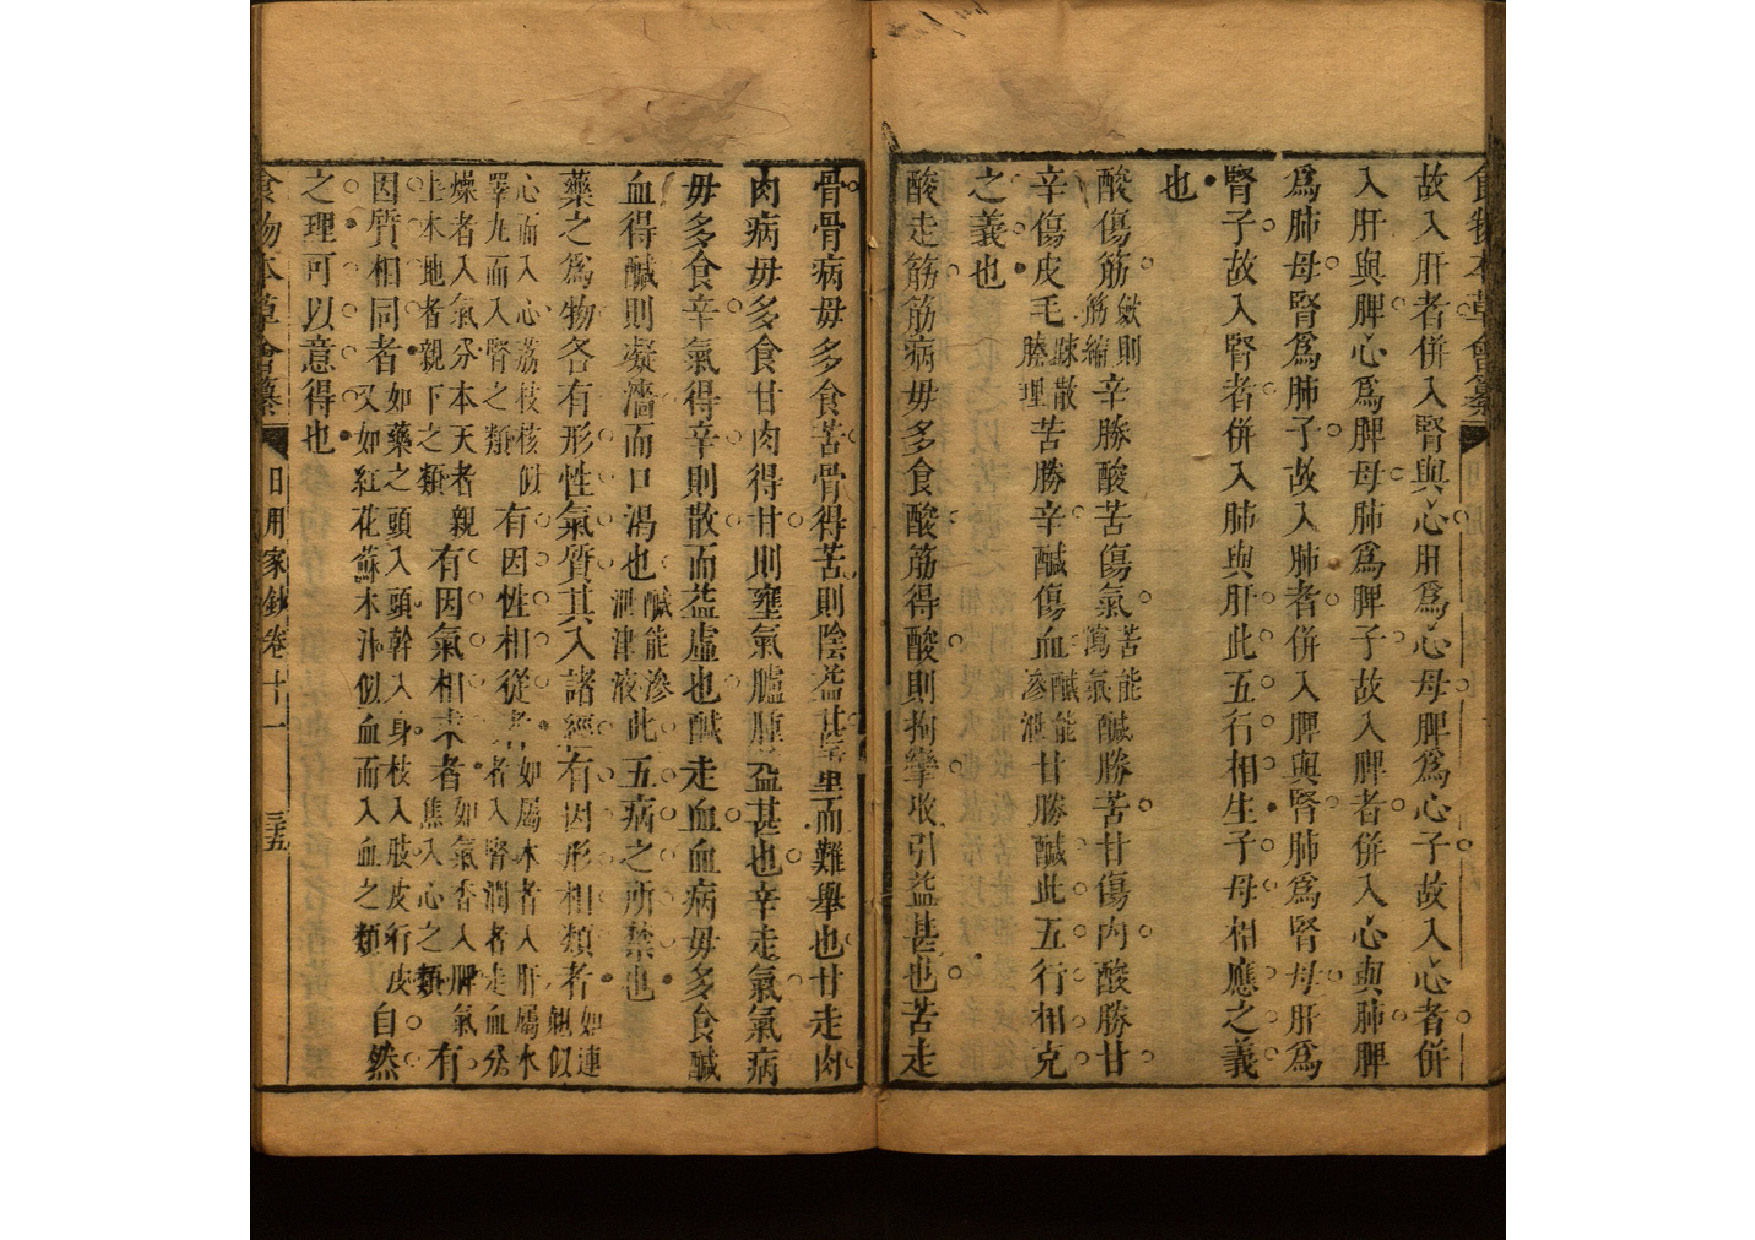 食物本草會纂
故入肝者併入腎與心肝爲心母脾爲心子故入心者併
入肝與脾心爲脾母肺爲脾子故入脾者併入心與肺脾
爲肺母腎爲肺子故入肺者併入脾與腎肺爲腎母肝爲
腎子故入腎者併入肺與肝此五行相生子母相應之義
也
酸傷筋斂則筋縮辛勝酸苦傷氣苦能瀉氣鹹勝苦甘傷肉酸勝甘
辛傷皮毛疎散腠理苦勝辛鹹傷血鹹能滲泄甘勝鹹此五行相克
之義也
酸走筋筋病毋多食酸筋得酸則拘攣收引益甚也苦走
骨骨病毋多食苦骨得苦則陰益甚重而難舉也甘走肉
肉病毋多食甘肉得甘則壅氣臚腫益甚也辛走氣氣病
毋多食辛氣得辛則散而益虛也鹹走血血病毋多食鹹
血得鹹則凝濇而口渴也鹹能滲泄津液此五病之所禁也
藥之爲物各有形性氣質其入諸經有因形相類者如連翹似
心而入心荔枝核似睪丸而入腎之類有因性相從者如屬木者入肝屬水者入腎潤者走血分
燥者入氣分本天者親上本地者親下之類有因氣相求者如氣香入脾氣焦入心之類有
因質相同者如藥之頭入頭幹入身枝入肢皮行皮又如紅花蘇木汁似血而入血之類自然
之理可以意得也
食物本草會纂 日用家鈔卷十一 三五